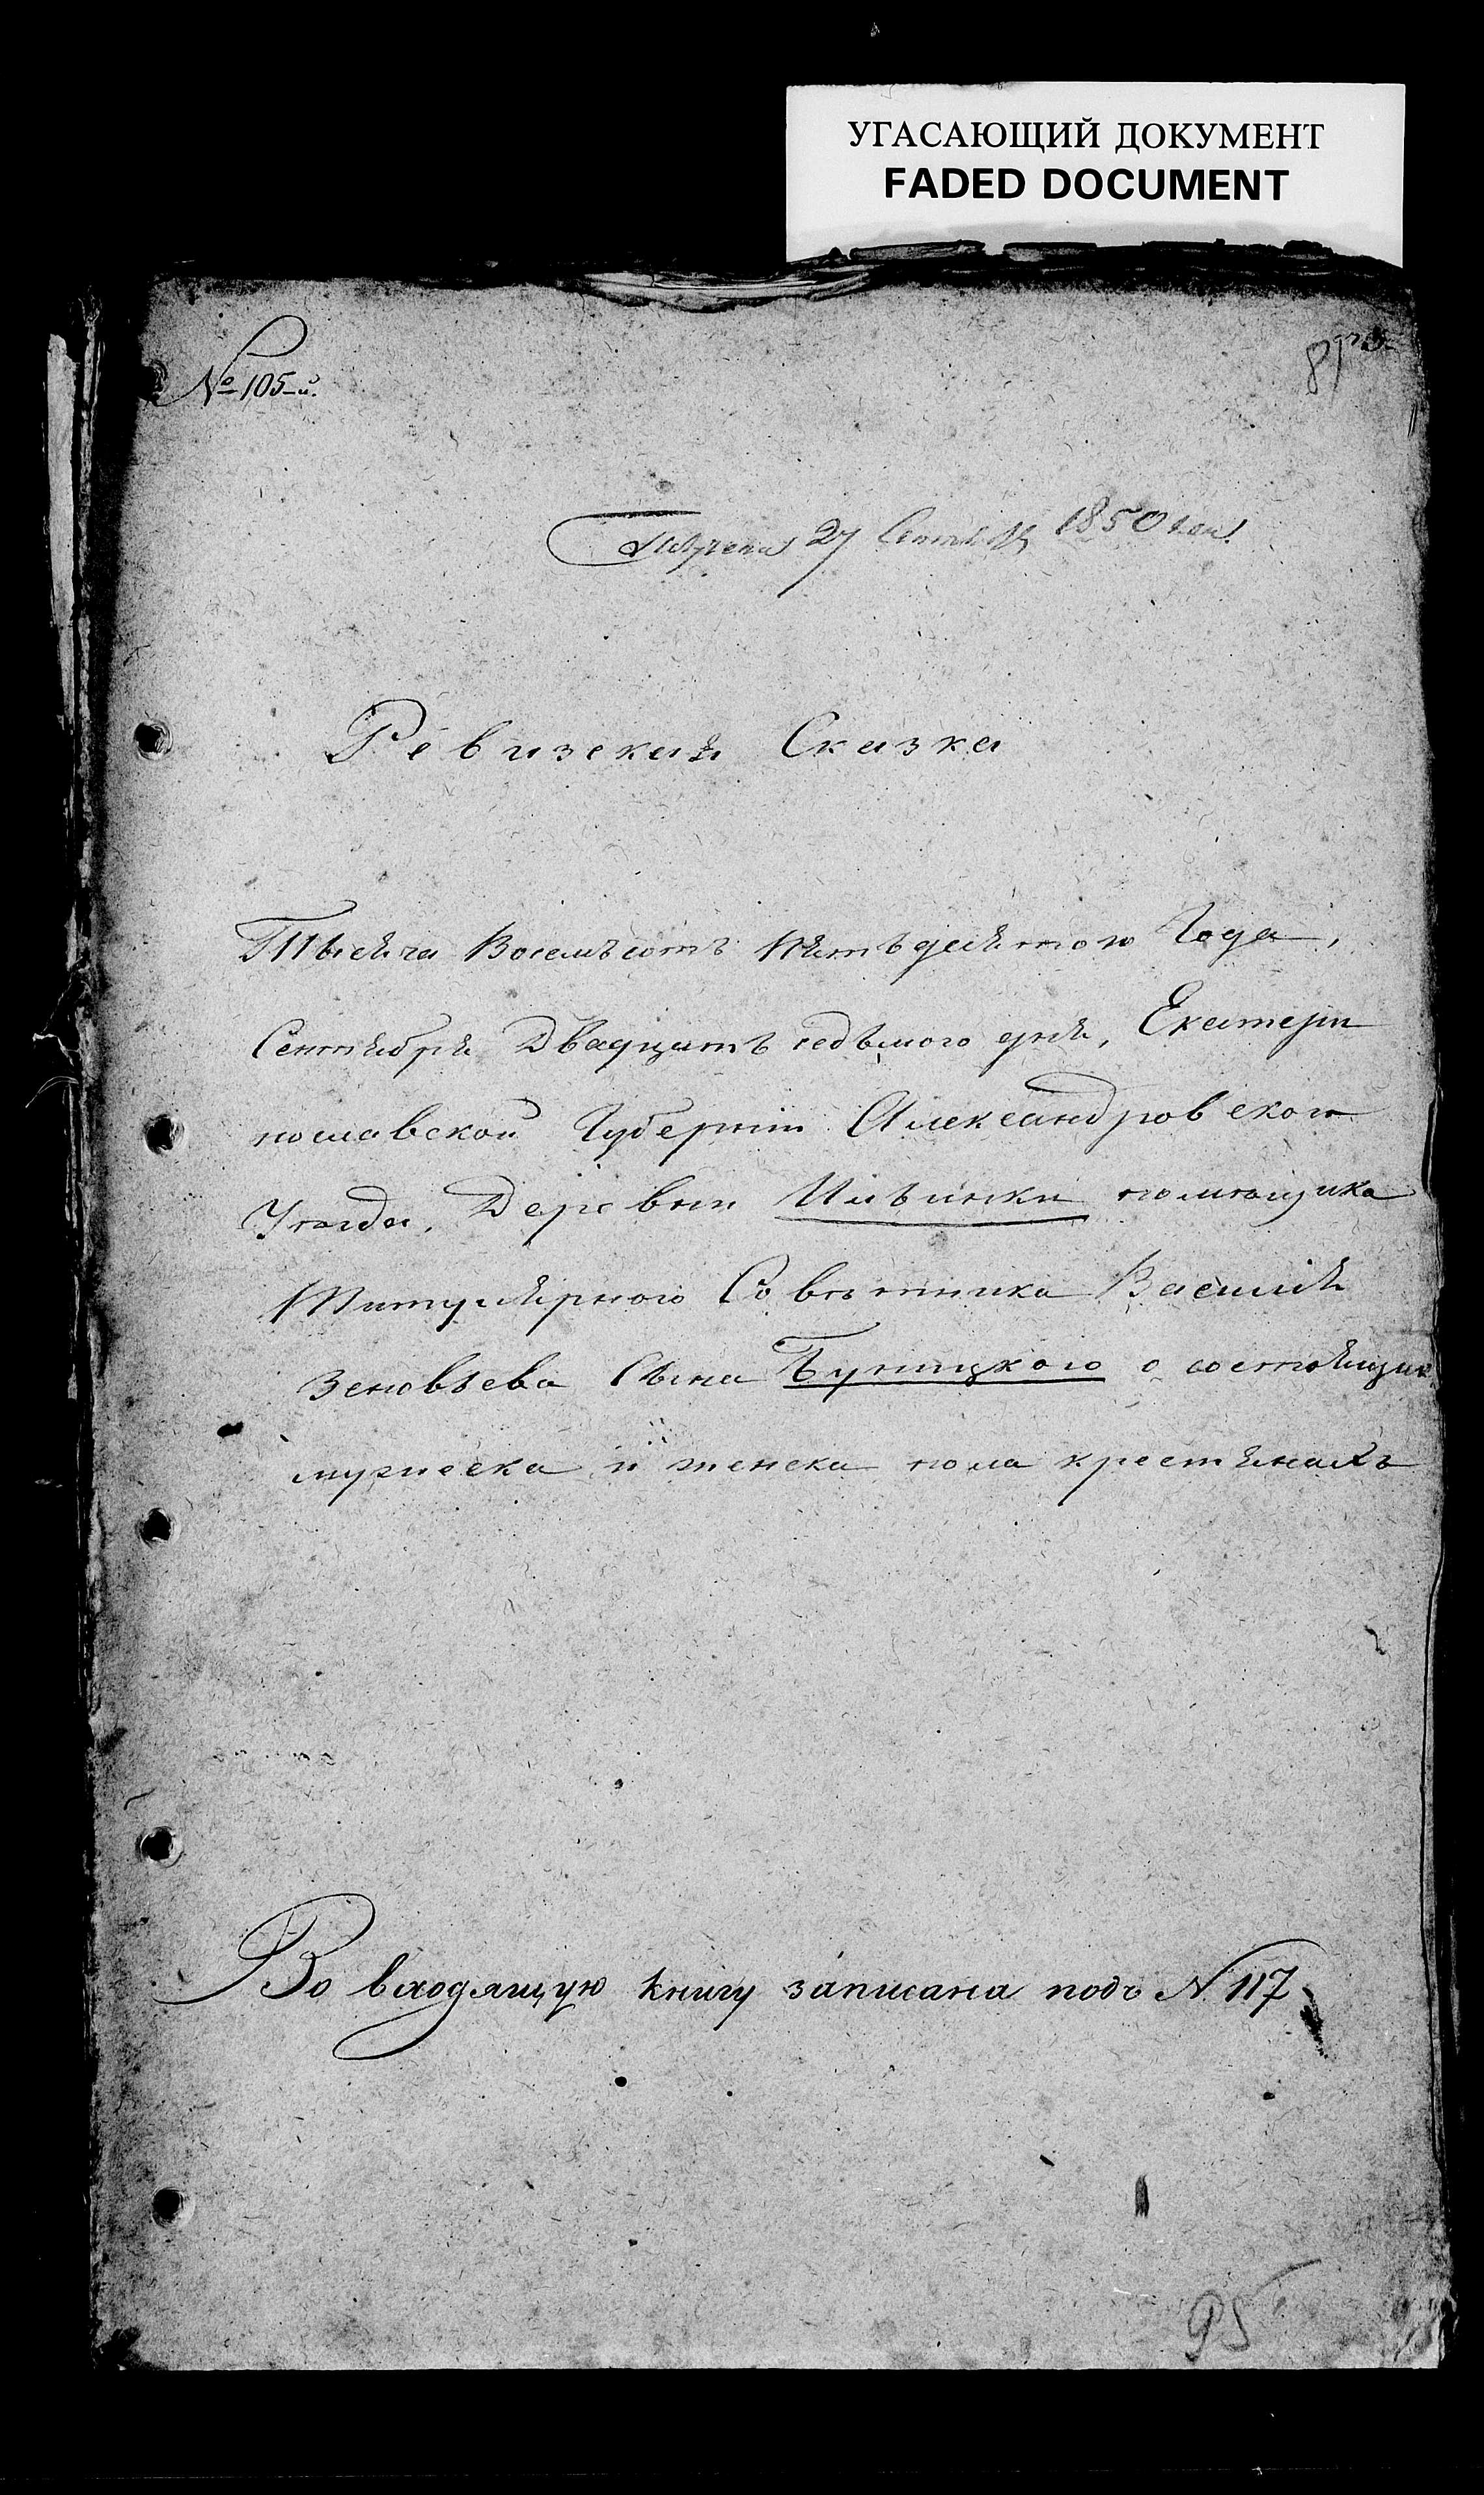 УГАСАЮЩИЙ ДОКУМЕНТ
FADED DOCUMENT
№ 105-й.
27 1850
Ревизская Сказка
Тысяча Восемьсотъ Пятьдесятого Года,
Сентября Двадцать седьмого дня, Екатерин
нославской Губернiи Александровского
Уезда, Деревни Ильинки помещика
Титулярного Советника Василiя
Зеновьева Сына Буницкого о состоящих
мужеска и женска пола крестянахъ
Во входящую книгу записана подъ № 117
95